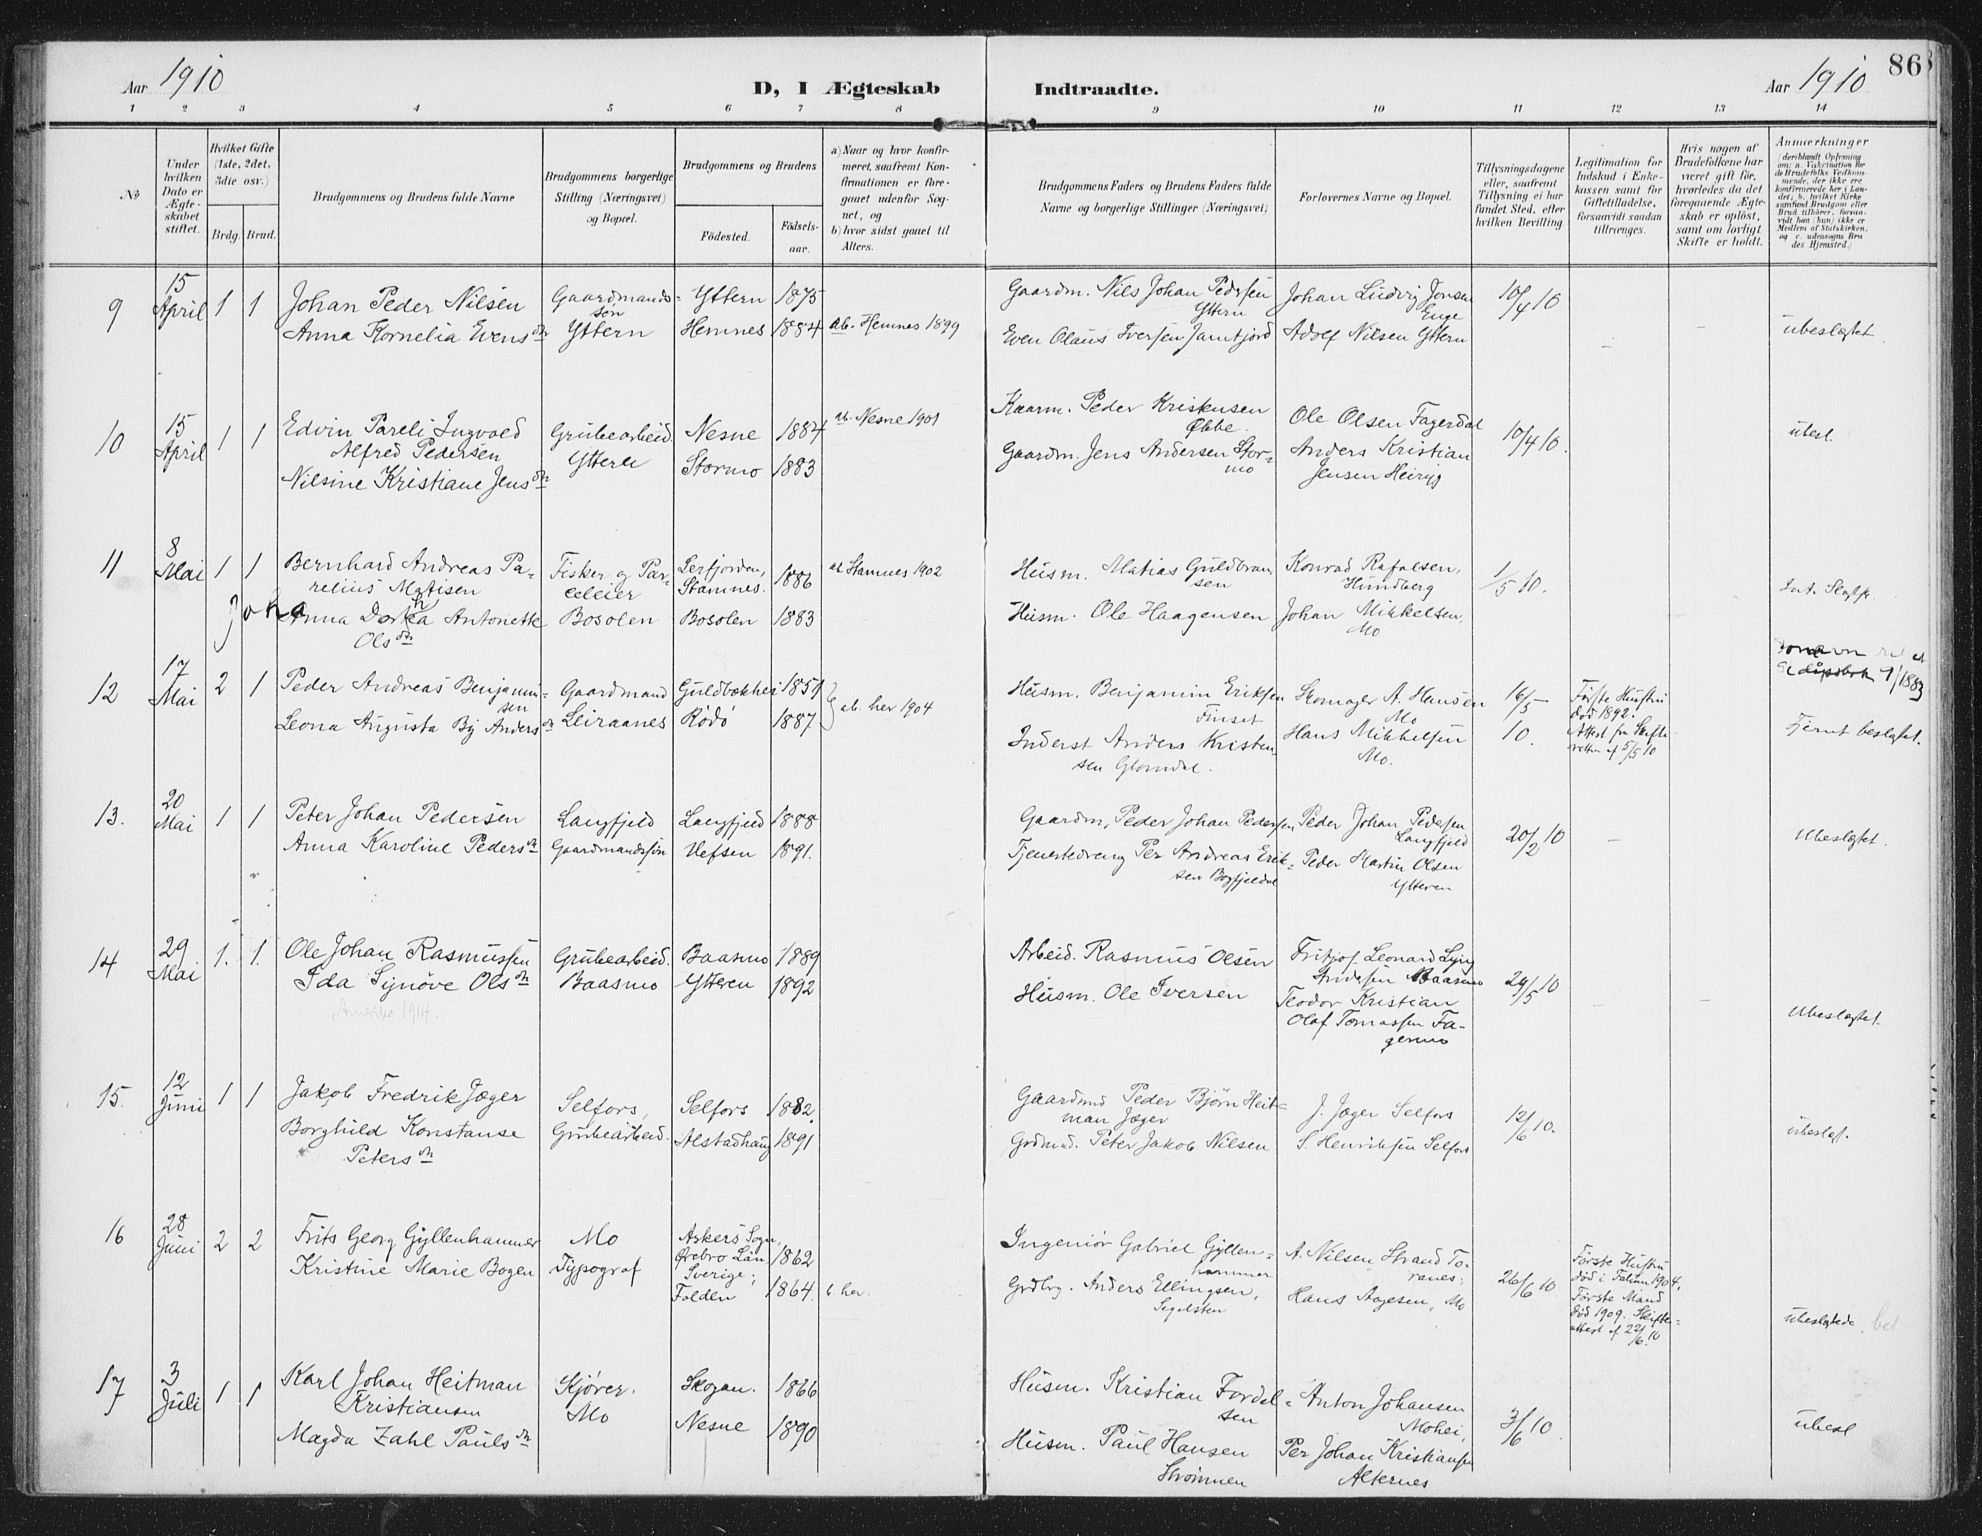 Aar 1910
D, I Ægteskab
Indtraadte.
Aar 1910
86
1 2 3 4 5 6 7 8 9 10 11 12 13 14
No
Under hvilken Dato er Ægteskabet stiftet.
Hvilket Gifte (1ste, 2det, 3die osv.)
Brdg. Brud.
Brudgommens og Brudens fulde Navne
Brudgommens borgerlige Stilling (Næringsvei) og Bopæl.
Brudgommens og Brudens
Fødested.
Fødselsaar.
a) Naar og hvor konfirmeret, saafremt Konfirmationen er foregaaet udenfor Sognet, og
b) hvor sidst gaaet til Alters.
Brudgommens Faders og Brudens Faders fulde Navne og borgerlige Stillinger (Næringsvei)
Forlovernes Navne og Bopæl.
Tillysningsdagene eller, saafremt Tillysning ei har fundet Sted, efter hvilken Bevilling.
Legitimation for Indskud i Enkekassen samt for Giftetilladelse, forsaavidt saadan tiltrænges.
Hvis nogen af Brudefolkene har været gift før, hvorledes da det foregaaende Ægteskab er opløst, samt om lovligt Skifte er holdt.
Anmærkninger
(deriblandt Oplysning om: a. Vaccination for de Brudefolks Vedkommende, der ikke ere konfirmerede her i Landet; b. hvilket Kirkesamfund Brudgom eller Brud tilhører, forsaavidt han (hun) ikke er Medlem af Statskirken, og c. udensogns Brudes Hjemsted.)
9
15 April
1 1
Johan Peder Nilsen
Anna Kornelia Evensdtr
Gaardmandssøn
Yttern
Yttern 1875
Hemnes 1884
ab. Hemnes 1899
Gaardm. Nils Johan Pedersen Yttern
Even Olaus Iversen Jamtjord
Johan Ludvig Jonsen Enge
Adolf Nilsen Yttern
10/4 10
ubeslægtet
10
15 April
1 1
Edvin Pareli Ingvald
Alfred Pedersen
Nilsine Kristiane Jensdtr
Grubearbeid.
Ytterli
Nesne 1884
Stormo 1883
ab. Nesne 1901
Kaarm. Peder Kristensen Øbbe.
Gaardm. Jens Andersen Stormo
Ole Olsen Fagerdal
Anders Kristian
Jensen
10/4 10.
ubesl.
11
8 Mai
1 1
Bernhard Andreas Parelius Matisen
Anna Dorthea Antonette
Olsdtr
Joha
Fisker og Parcelleier
Bosolen
Serfjorden, Stamnes. 1886
Bosolen 1883
a Stamnes 1902
Husm. Matias Guldbransen
Husm. Ole Haagensen
Konrad Rafalsen, Hundberg
Johan Mikkelsen, Mo
1/5 10.
Int. Slegtsk.
12
17 Mai
2 1
Peder Andreas Benjaminsen
Leona Augusta By Andersdtr
Gaardmand
Leiraanes
Guldbækhei 1851
Rödö 1887
ab. her 1904
Husm. Benjamin Eriksen Finset
Inderst Anders Kristensen Glomdal.
Skomager A. Hansen Mo
Hans Mikkelsen Mo.
16/5 10.
Første Hustru død 1892.
Attest fra Skifteretten af 5/5 10
Fjernt beslægtet.
13.
20 Mai
1 1
Peter Johan Pedersen
Anna Karoline Pedersdtr
Langfjeld
Gaardmandssøn
Langfjeld 1888
Vefsen 1891.
Gaardm. Peder Johan Pedersen
Tjenestedreng Per Andreas Eriksen Bogfjeldal
Peder Johan Pedersen Langfjeld
Peder Martin Olsen Ytteren
20/2 10
Ubeslægtet.
14
29 Mai
1. 1.
Ole Johan Rasmussen
Ida Synöve Olsdtr
Amerika 1914.
Grubearbeid.
Baasmo
Baasmo 1889
Ytteren 1892
Arbeid. Rasmus Olsen
Husm. Ole Iversen
Fritjof Leonard Lyng
Andersen Baasmo
Teodor Kristian
Olaf Tomassen Fagermo
29/5 10
Ubeslægtet.
15.
12 Juni
1 1
Jakob Fredrik Jæger
Borghild Konstanse
Petersdtr
Selfors,
Grubearbeid.
Selfors 1882.
Alstadhaug 1891
Gaardmd Peder Bjørn Heitman Jæger
Grdmd. Peter Jakob Nilsen
J. Jæger Selfors
S. Henriksen Selfors
12/6 10.
ubeslægt.
16
28 Juni
2 2
Frits Georg Gyllenhammer
Kristine Marie Bogen
Mo
Typograf
Askers Sogn, Ørebro Län Sverige; 1862
Folden 1864.
b. her.
Ingeniør Gabriel Gyllenhammer
Grdbr. Anders Ellingsen, Segelsten
A. Nilsen Strand Toranes;
Hans Aagesen, Mo
26/6 10
Første Hustru død i Falun 1904.
Første Mand død 1909. Skifteattest af 22/6 10
ubeslægtede
17
3 Juli
1 1
Karl Johan Heitman
Kristiansen
Magda Zahl Paulsdtr
Kjører.
Mo
Skogan. 1866
Nesne 1890
Husm. Kristian Fordelsen
Husm. Paul Hansen Strømmen
Anton Johansen Mohei,
Per Johan Kristiansen Alternes
3/6 10
ubesl